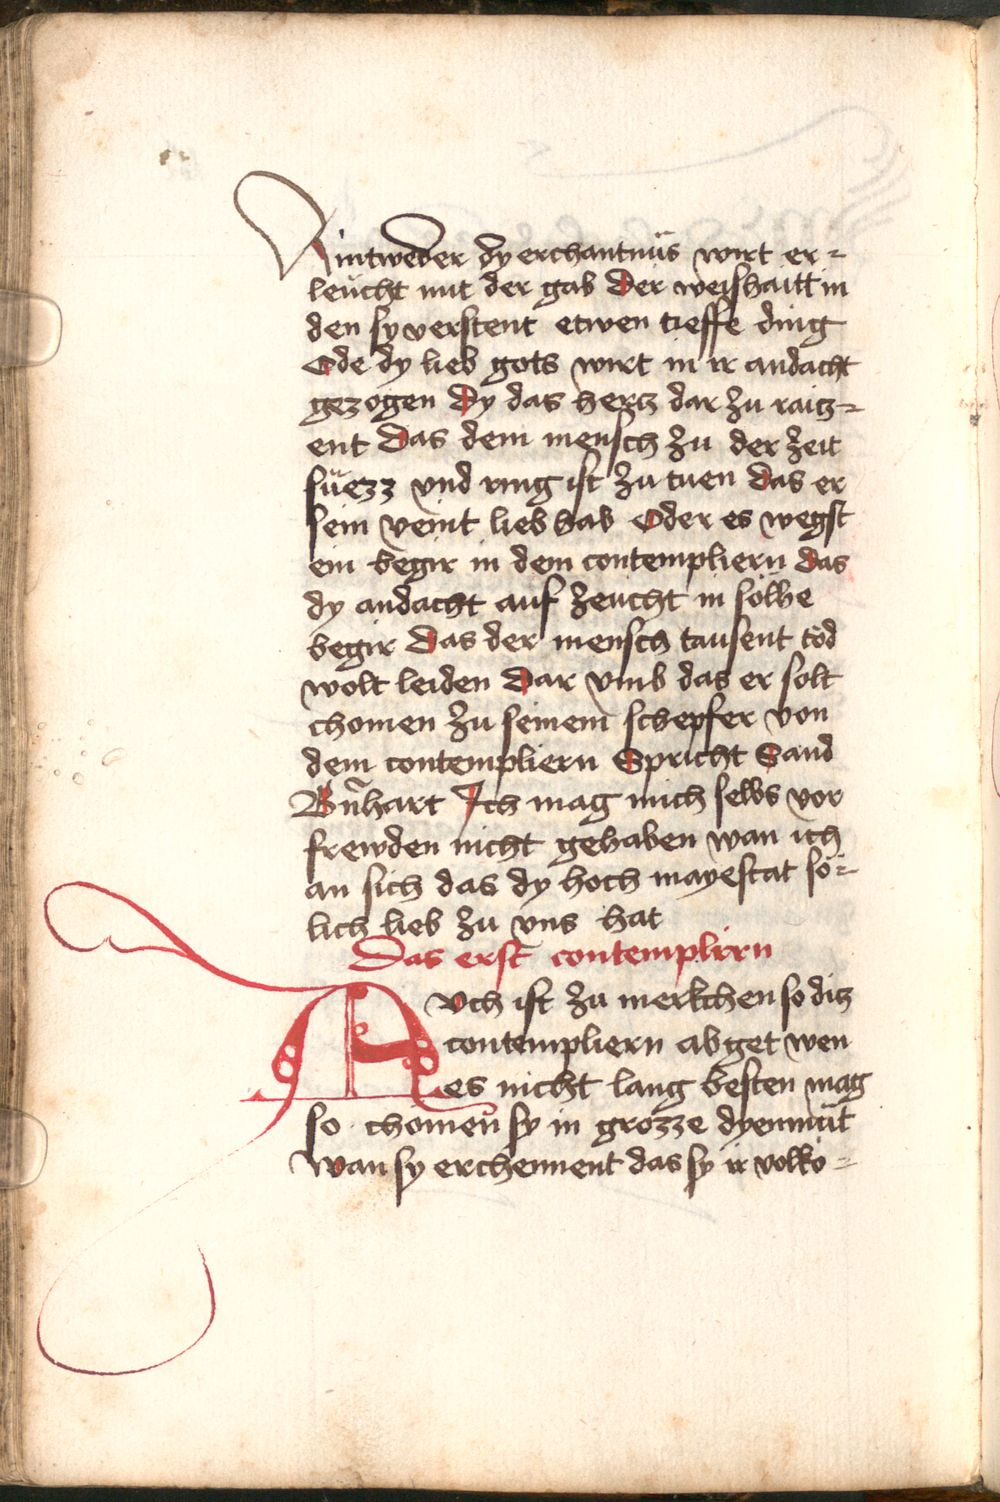 Aintweder dy erchantnüs wirt er=
leücht mit der gab Der weishaitt in
den sy verstent etwen tieffe ding
Ode dy lieb gots wirt in ir andacht
gezogen Dy das hertz dar zu raitz=
ent Das dem mensch zu der zeit
süezz vnd ring ist zu tuen Das er
sein veint lieb hab Oder es wegst
ein begir in dem contempliern Das
dy andacht auf zeucht in sölhe
begir Das der mensch tausent töd
wolt leiden Dar vmb das er solt
chomen zu seinem schepfer von
dem contempliern Spricht Sand
Bn̄hart Ich mag mich selbs vor
frewden nicht gehaben wan ich
an sich das dy hoch mayestat sö=
lich lieb zu vns hat
Das erst contemplirn
Avch ist zu merkchen so ditz
contempliern abget wen
es nicht lang besten mag
so chomen sy in grozze dyemüt
Wan sy erchennent das sy ir volko=